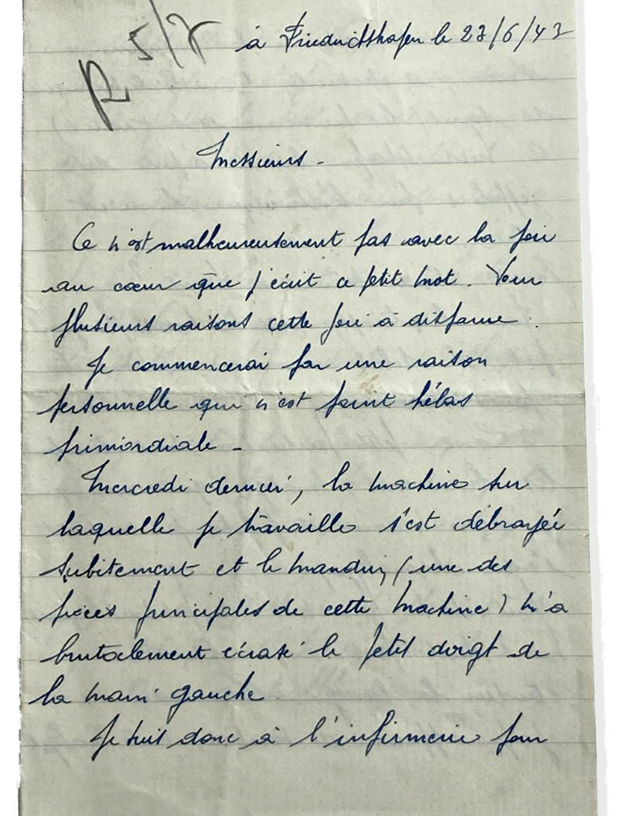 R 5/7
à Friedrichshafen le 27/6/43
Messieurs -
Ce n'est malheureusement pas avec la joie
au cœur que j'écrit ce petit mot.
plusieurs raisons cette joie à disparue.
Je commencerai par une raison
personnelle qui n'est point hélas
primordiale -
Mercredi dernier, la machine sur
laquelle je travaille s'est débrayée
subitement et le mandrin (une des
pièces principales de cette machine) m'a
brutalement écrasé le petit doigt de
la main gauche.
Je suis donc à l'infirmerie pour